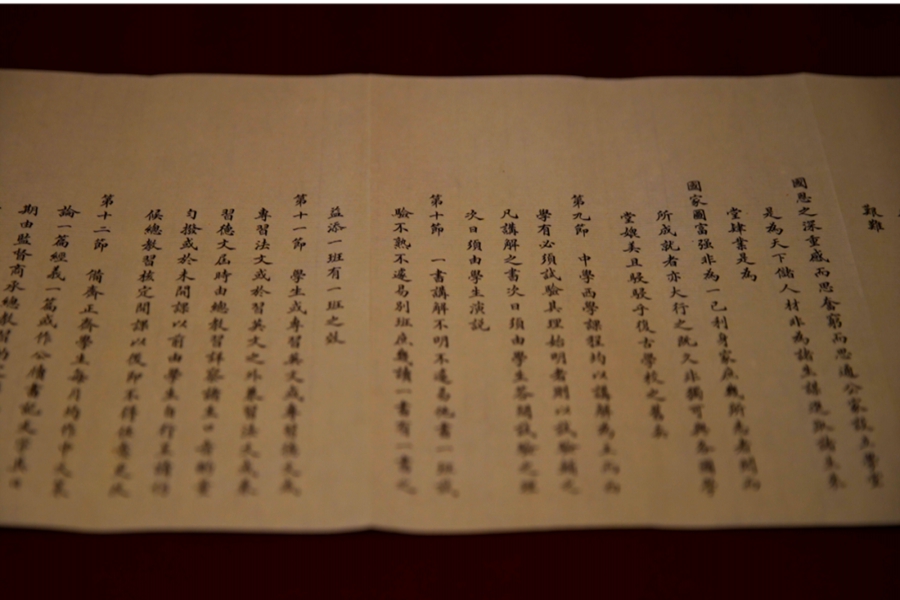 艱難
國恩之深重感而思奮窮而思通公家設立學堂
是為天下儲人材非為諸生謀
堂肄業是為
國家圖富強非為一己利身家庶幾所志者
所成就者亦大行之既久非獨可與泰西學
堂媲美且駸駸乎復古學校之舊矣
第九節 中學西學課程均以講解為主而西
學有必須試驗其理始明者則以試驗
凡講解之書次日須由學生答問試驗之
次日須由學生演說
第十節 一書講解不明不遽易他書一班試
驗不熟不遽易別班庶幾讀一書有一書之
益添一班有一班之效
第十一節 學生或專習英文或專習德文或
專習法文或於習英文之外兼習法文或兼
習德文屆時由總教習詳察諸生口音
勻撥或於未開課以前由學生自行
候總教習核定開課以後即不得
第十二節 備齋正齋學生每月均作中文
論一篇經義一篇或作公牘書記文字
期由監督商承總教習